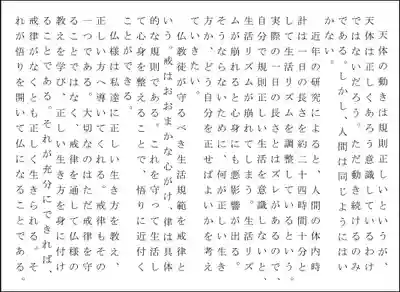 天体の動きは規則正しいというが、
天体は正しくあろう意識しているわけ
ではないだろう。ただ動き続けるのみ
である。しかし、人間は同じようにはい
近年の研究によると、人間の体内時
計は一日の長さを約二十四時間十分と
して生活リズムを調整しているという。
実際の一日の長さとはズレがあるので、
自分で規則正しい生活を意識しないと、
生活リズムが崩れてしまう。生活リズ
ムが崩れると心身にも悪影響が出る。
そうならないために、何が正しい生き
方か、どう自分を正せばよいかを考え
ていきたい。
仏教徒が守るべき生活規範を戒律と
いう。戒はおおまかな心がけ、律は具体
的な規則である。これを守って生活し
て心身を整えることで、悟りに近付く
ことができる。
仏様は私達に正しい生き方を教え、
正しい方へ導いてくれる。戒律もその
一つである。大切なのはただ戒律を守
ることではなく、戒律を通して仏様の
教えを学び、正しい生き方を身に付け
ることである。それが充分にできれば、
戒律がなくとも正しく生きられる。そ
れが悟りを開いて仏になることである。